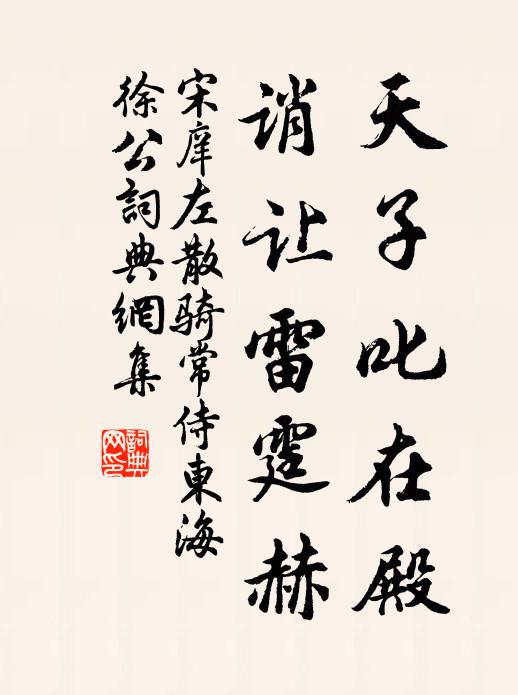 天子叱在殿
诮让雷霆赫
宋庠左散骑常侍東海
徐公詞典網集
詞典網印